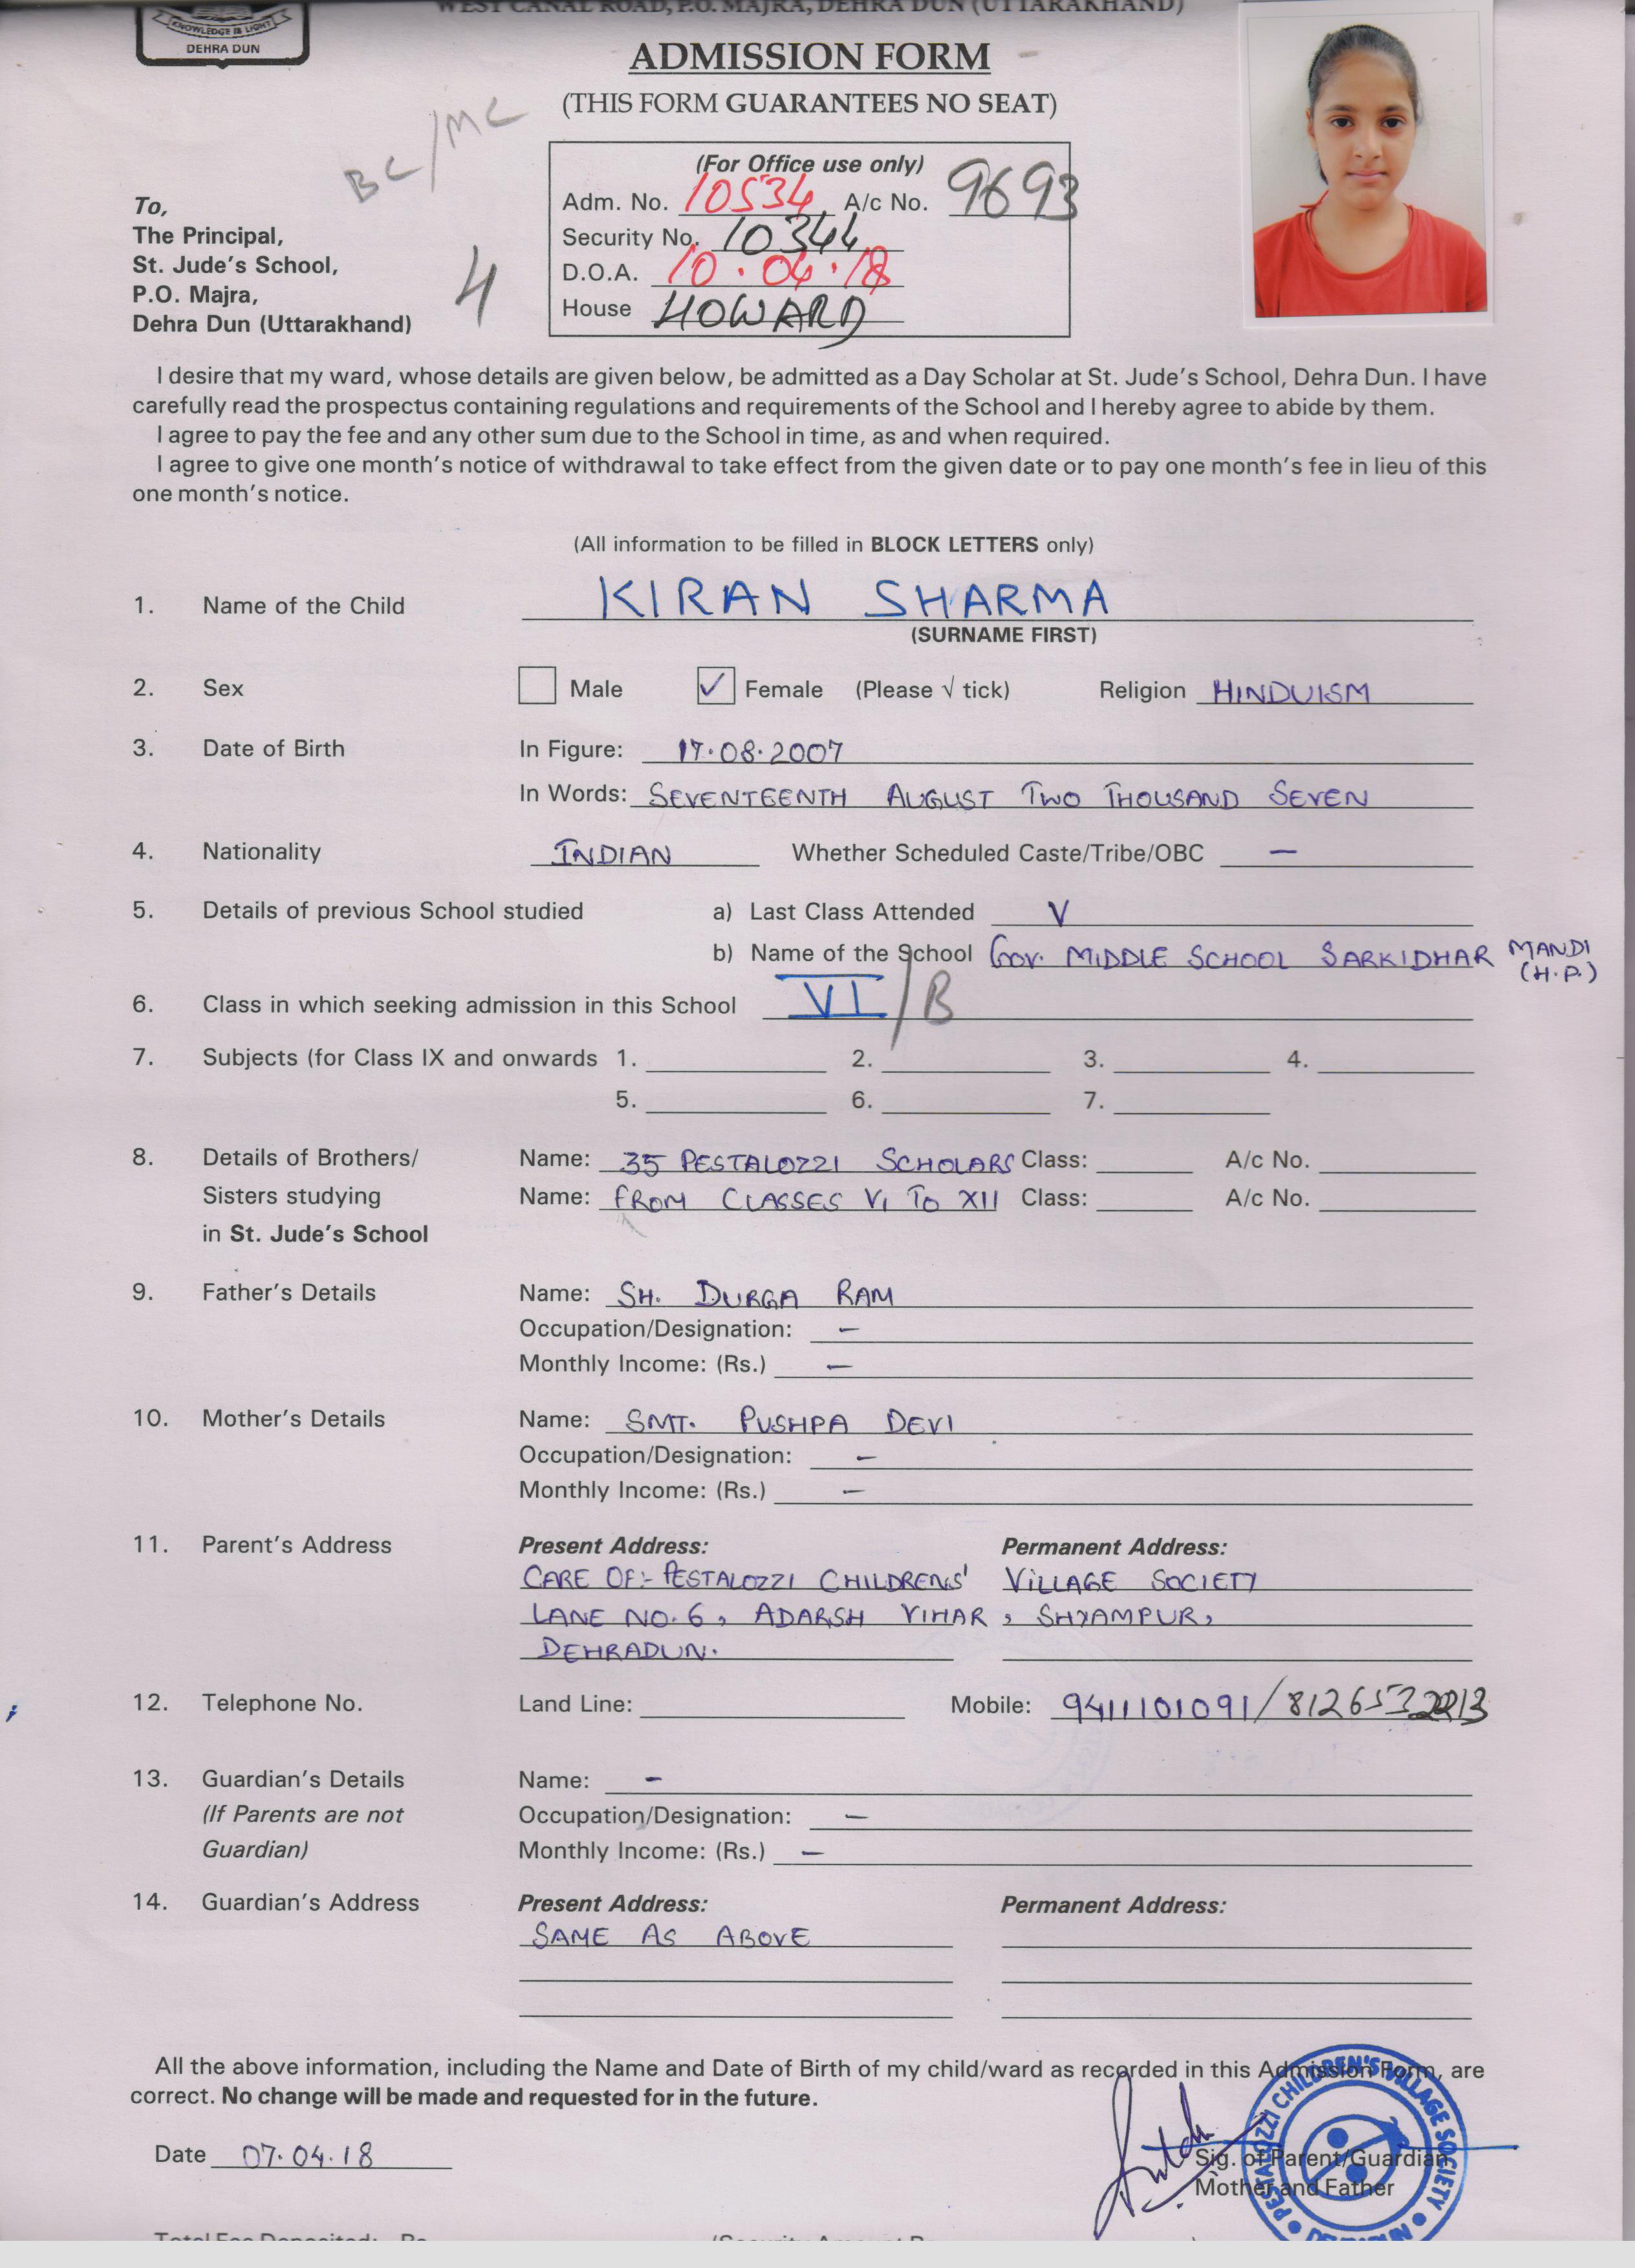 WEST CANAL ROAD, P.O. MAJRA, DEHRA DUN (UTTARAKHAND)
KNOWLEDGE IS LIGHT
DEHRA DUN
ADMISSION FORM
(THIS FORM GUARANTEES NO SEAT)
BC/MC
(For Office use only)
Adm. No. 10534 A/c No. 9693
Security No. 10344
D.O.A. 10.04.18
House HOWARD
To,
The Principal,
St. Jude's School,
P.O. Majra,
Dehra Dun (Uttarakhand)
4
I desire that my ward, whose details are given below, be admitted as a Day Scholar at St. Jude's School, Dehra Dun. I have
carefully read the prospectus containing regulations and requirements of the School and I hereby agree to abide by them.
I agree to pay the fee and any other sum due to the School in time, as and when required.
I agree to give one month's notice of withdrawal to take effect from the given date or to pay one month's fee in lieu of this
one month's notice.
(All information to be filled in BLOCK LETTERS only)
1. Name of the Child KIRAN SHARMA
(SURNAME FIRST)
2. Sex Male ✓ Female (Please √ tick) Religion HINDUISM
3. Date of Birth In Figure: 17.08.2007
In Words: SEVENTEENTH AUGUST TWO THOUSAND SEVEN
4. Nationality INDIAN Whether Scheduled Caste/Tribe/OBC —
5. Details of previous School studied a) Last Class Attended V
b) Name of the School GOV. MIDDLE SCHOOL SARKIDHAR MANDI
(H.P.)
6. Class in which seeking admission in this School VI/B
7. Subjects (for Class IX and onwards 1. 2. 3. 4.
5. 6. 7.
8. Details of Brothers/ Name: 35 PESTALOZZI SCHOLARS Class: A/c No.
Sisters studying Name: FROM CLASSES VI TO XII Class: A/c No.
in St. Jude's School
9. Father's Details Name: SH. DURGA RAM
Occupation/Designation: —
Monthly Income: (Rs.) —
10. Mother's Details Name: SMT. PUSHPA DEVI
Occupation/Designation: —
Monthly Income: (Rs.) —
11. Parent's Address Present Address: Permanent Address:
CARE OF:- PESTALOZZI CHILDRENS' VILLAGE SOCIETY
LANE NO. 6, ADARSH VIHAR, SHYAMPUR,
DEHRADUN.
12. Telephone No. Land Line: Mobile: 9411101091/8126532213
13. Guardian's Details Name: -
(If Parents are not Occupation/Designation: —
Guardian) Monthly Income: (Rs.) —
14. Guardian's Address Present Address: Permanent Address:
SAME AS ABOVE
All the above information, including the Name and Date of Birth of my child/ward as recorded in this Admission Form, are
correct. No change will be made and requested for in the future.
Date 07.04.18
Sig. of Parent/Guardian
Mother and Father
PESTALOZZI CHILDREN'S VILLAGE SOCIETY
Total Fee Deposited: Rs.